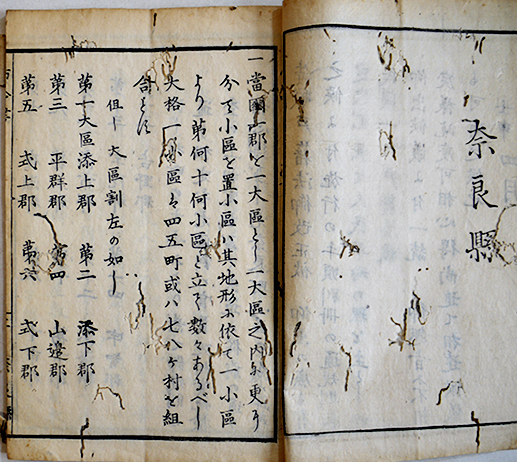 奈良縣
一當國一郡を一大區とし一大區之内尓更尓
分て小區を置小區ハ其地形尓依て一小區
より第何十何小區と立て數々あるべし
大格一小區ハ四五町或ハ七八ヶ村を組
合とす
但し大區割左の如し
第十大區添上郡 第二 添下郡
第三 平群郡 第四 山邉郡
第五 式上郡 第六 式下郡